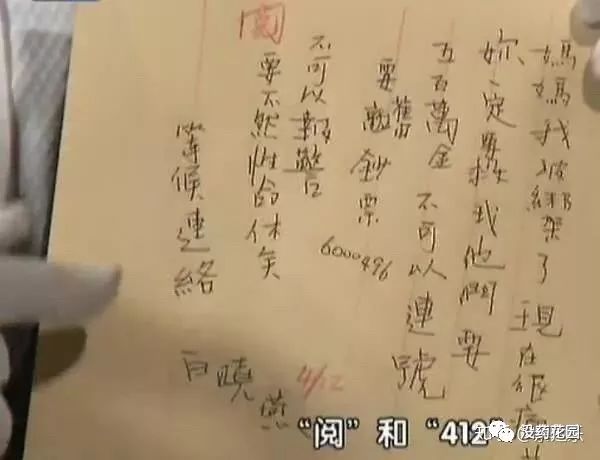 媽媽我被綁架了現在很痛
妳一定要救我他們要
五百萬金 不可以連號
要舊鈔票
6000496
不可以報警
要不然性命休矣
閱
等候連絡
白曉燕
4/12
“阅”和“412”
没药花园